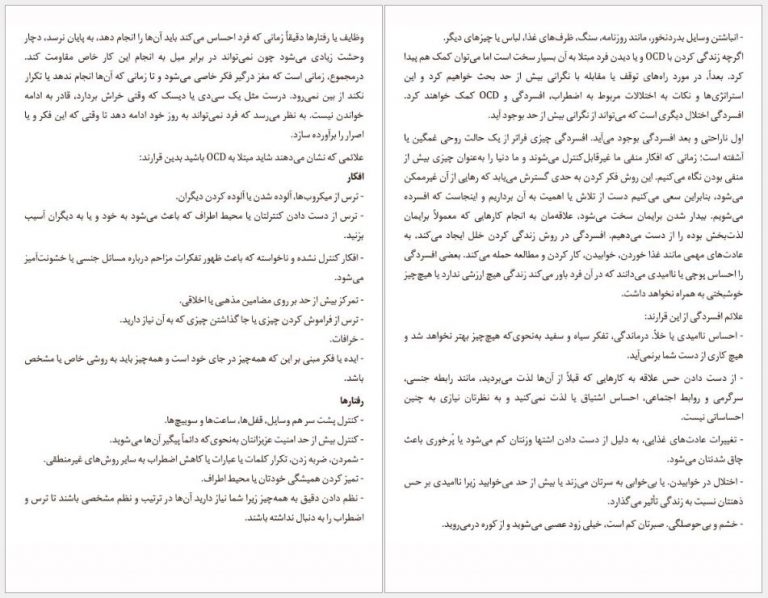 وظایف یا رفتارها دقیقاً زمانی که فرد احساس می‌کند باید آن‌ها را انجام دهد، به پایان نرسد، دچار
وحشت زیادی می‌شود چون نمی‌تواند در برابر میل به انجام این کار خاص مقاومت کند.
درمجموع، زمانی است که مغز درگیر فکر خاصی می‌شود و تا زمانی که آن‌ها انجام ندهد یا تکرار
نکند از بین نمی‌رود. درست مثل یک سی‌دی یا دیسک که وقتی خراش بردارد، قادر به ادامه
خواندن نیست. به نظر می‌رسد که فرد نمی‌تواند به روز خود ادامه دهد تا وقتی که این فکر و یا
اصرار را برآورده سازد.
علائمی که نشان می‌دهند شاید مبتلا به OCD باشید بدین قرارند:
افکار
- ترس از میکروب‌ها، آلوده شدن یا آلوده کردن دیگران.
- ترس از دست دادن کنترلتان یا محیط اطراف که باعث می‌شود به خود و یا به دیگران آسیب
بزنید.
- افکار کنترل نشده و ناخواسته که باعث ظهور تفکرات مزاحم درباره مسائل جنسی یا خشونت‌آمیز
می‌شود.
- تمرکز بیش از حد بر روی مضامین مذهبی یا اخلاقی.
- ترس از فراموش کردن چیزی یا جا گذاشتن چیزی که به آن نیاز دارید.
- خرافات.
- ایده یا فکر مبنی بر این که همه‌چیز در جای خود است و همه‌چیز باید به روشی خاص یا مشخص
باشد.
رفتارها
- کنترل پشت سر هم وسایل، قفل‌ها، ساعت‌ها و سوییچ‌ها.
- کنترل بیش از حد امنیت عزیزانتان به‌نحوی‌که دائماً پیگیر آن‌ها می‌شوید.
- شمردن، ضربه زدن، تکرار کلمات یا عبارات یا کاهش اضطراب به سایر روش‌های غیرمنطقی.
- تمیز کردن همیشگی خودتان یا محیط اطراف.
- نظم دادن دقیق به همه‌چیز زیرا شما نیاز دارید آن‌ها در ترتیب و نظم مشخصی باشند تا ترس و
اضطراب را به دنبال نداشته باشند.
- انباشتن وسایل بدردنخور، مانند روزنامه، سنگ، ظرف‌های غذا، لباس یا چیزهای دیگر.
اگرچه زندگی کردن با OCD و یا دیدن فرد مبتلا به آن بسیار سخت است اما می‌توان کمک هم پیدا
کرد. بعداً، در مورد راه‌های توقف یا مقابله با نگرانی بیش از حد بحث خواهیم کرد و این
استراتژی‌ها و نکات به اختلالات مربوط به اضطراب، افسردگی و OCD کمک خواهند کرد.
افسردگی اختلال دیگری است که می‌تواند از نگرانی بیش از حد بوجود آید.
اول ناراحتی و بعد افسردگی بوجود می‌آید. افسردگی چیزی فراتر از یک حالت روحی غمگین یا
آشفته است؛ زمانی که افکار منفی ما غیرقابل‌کنترل می‌شوند و ما دنیا را به‌عنوان چیزی بیش از
منفی بودن نگاه می‌کنیم. این روش فکر کردن به حدی گسترش می‌یابد که رهایی از آن غیرممکن
می‌شود، بنابراین سعی می‌کنیم دست از تلاش یا اهمیت به آن برداریم و اینجاست که افسرده
می‌شویم. بیدار شدن برایمان سخت می‌شود، علاقه‌مان به انجام کارهایی که معمولاً برایمان
لذت‌بخش بوده را از دست می‌دهیم. افسردگی در روش زندگی کردن خلل ایجاد می‌کند، به
عادت‌های مهمی مانند غذا خوردن، خوابیدن، کار کردن و مطالعه حمله می‌کند. بعضی افسردگی
را احساس پوچی یا ناامیدی می‌دانند که در آن فرد باور می‌کند زندگی هیچ ارزشی ندارد یا هیچ‌چیز
خوشبختی به همراه نخواهد داشت.
علائم افسردگی از این قرارند:
- احساس ناامیدی یا خلأ، درماندگی، تفکر سیاه و سفید به‌نحوی‌که هیچ‌چیز بهتر نخواهد شد و
هیچ کاری از دست شما برنمی‌آید.
- از دست دادن حس علاقه به کارهایی که قبلاً از آن‌ها لذت می‌بردید، مانند رابطه جنسی،
سرگرمی و روابط اجتماعی، احساس اشتیاق یا لذت نمی‌کنید و به نظرتان نیازی به چنین
احساساتی نیست.
- تغییرات عادت‌های غذایی، به دلیل از دست دادن اشتها وزنتان کم می‌شود یا پُرخوری باعث
چاق شدنتان می‌شود.
- اختلال در خوابیدن. یا بی‌خوابی به سرتان می‌زند یا بیش از حد می‌خوابید زیرا ناامیدی بر حس
ذهنتان نسبت به زندگی تأثیر می‌گذارد.
- خشم و بی‌حوصلگی. صبرتان کم است، خیلی زود عصبی می‌شوید و از کوره درمی‌روید.